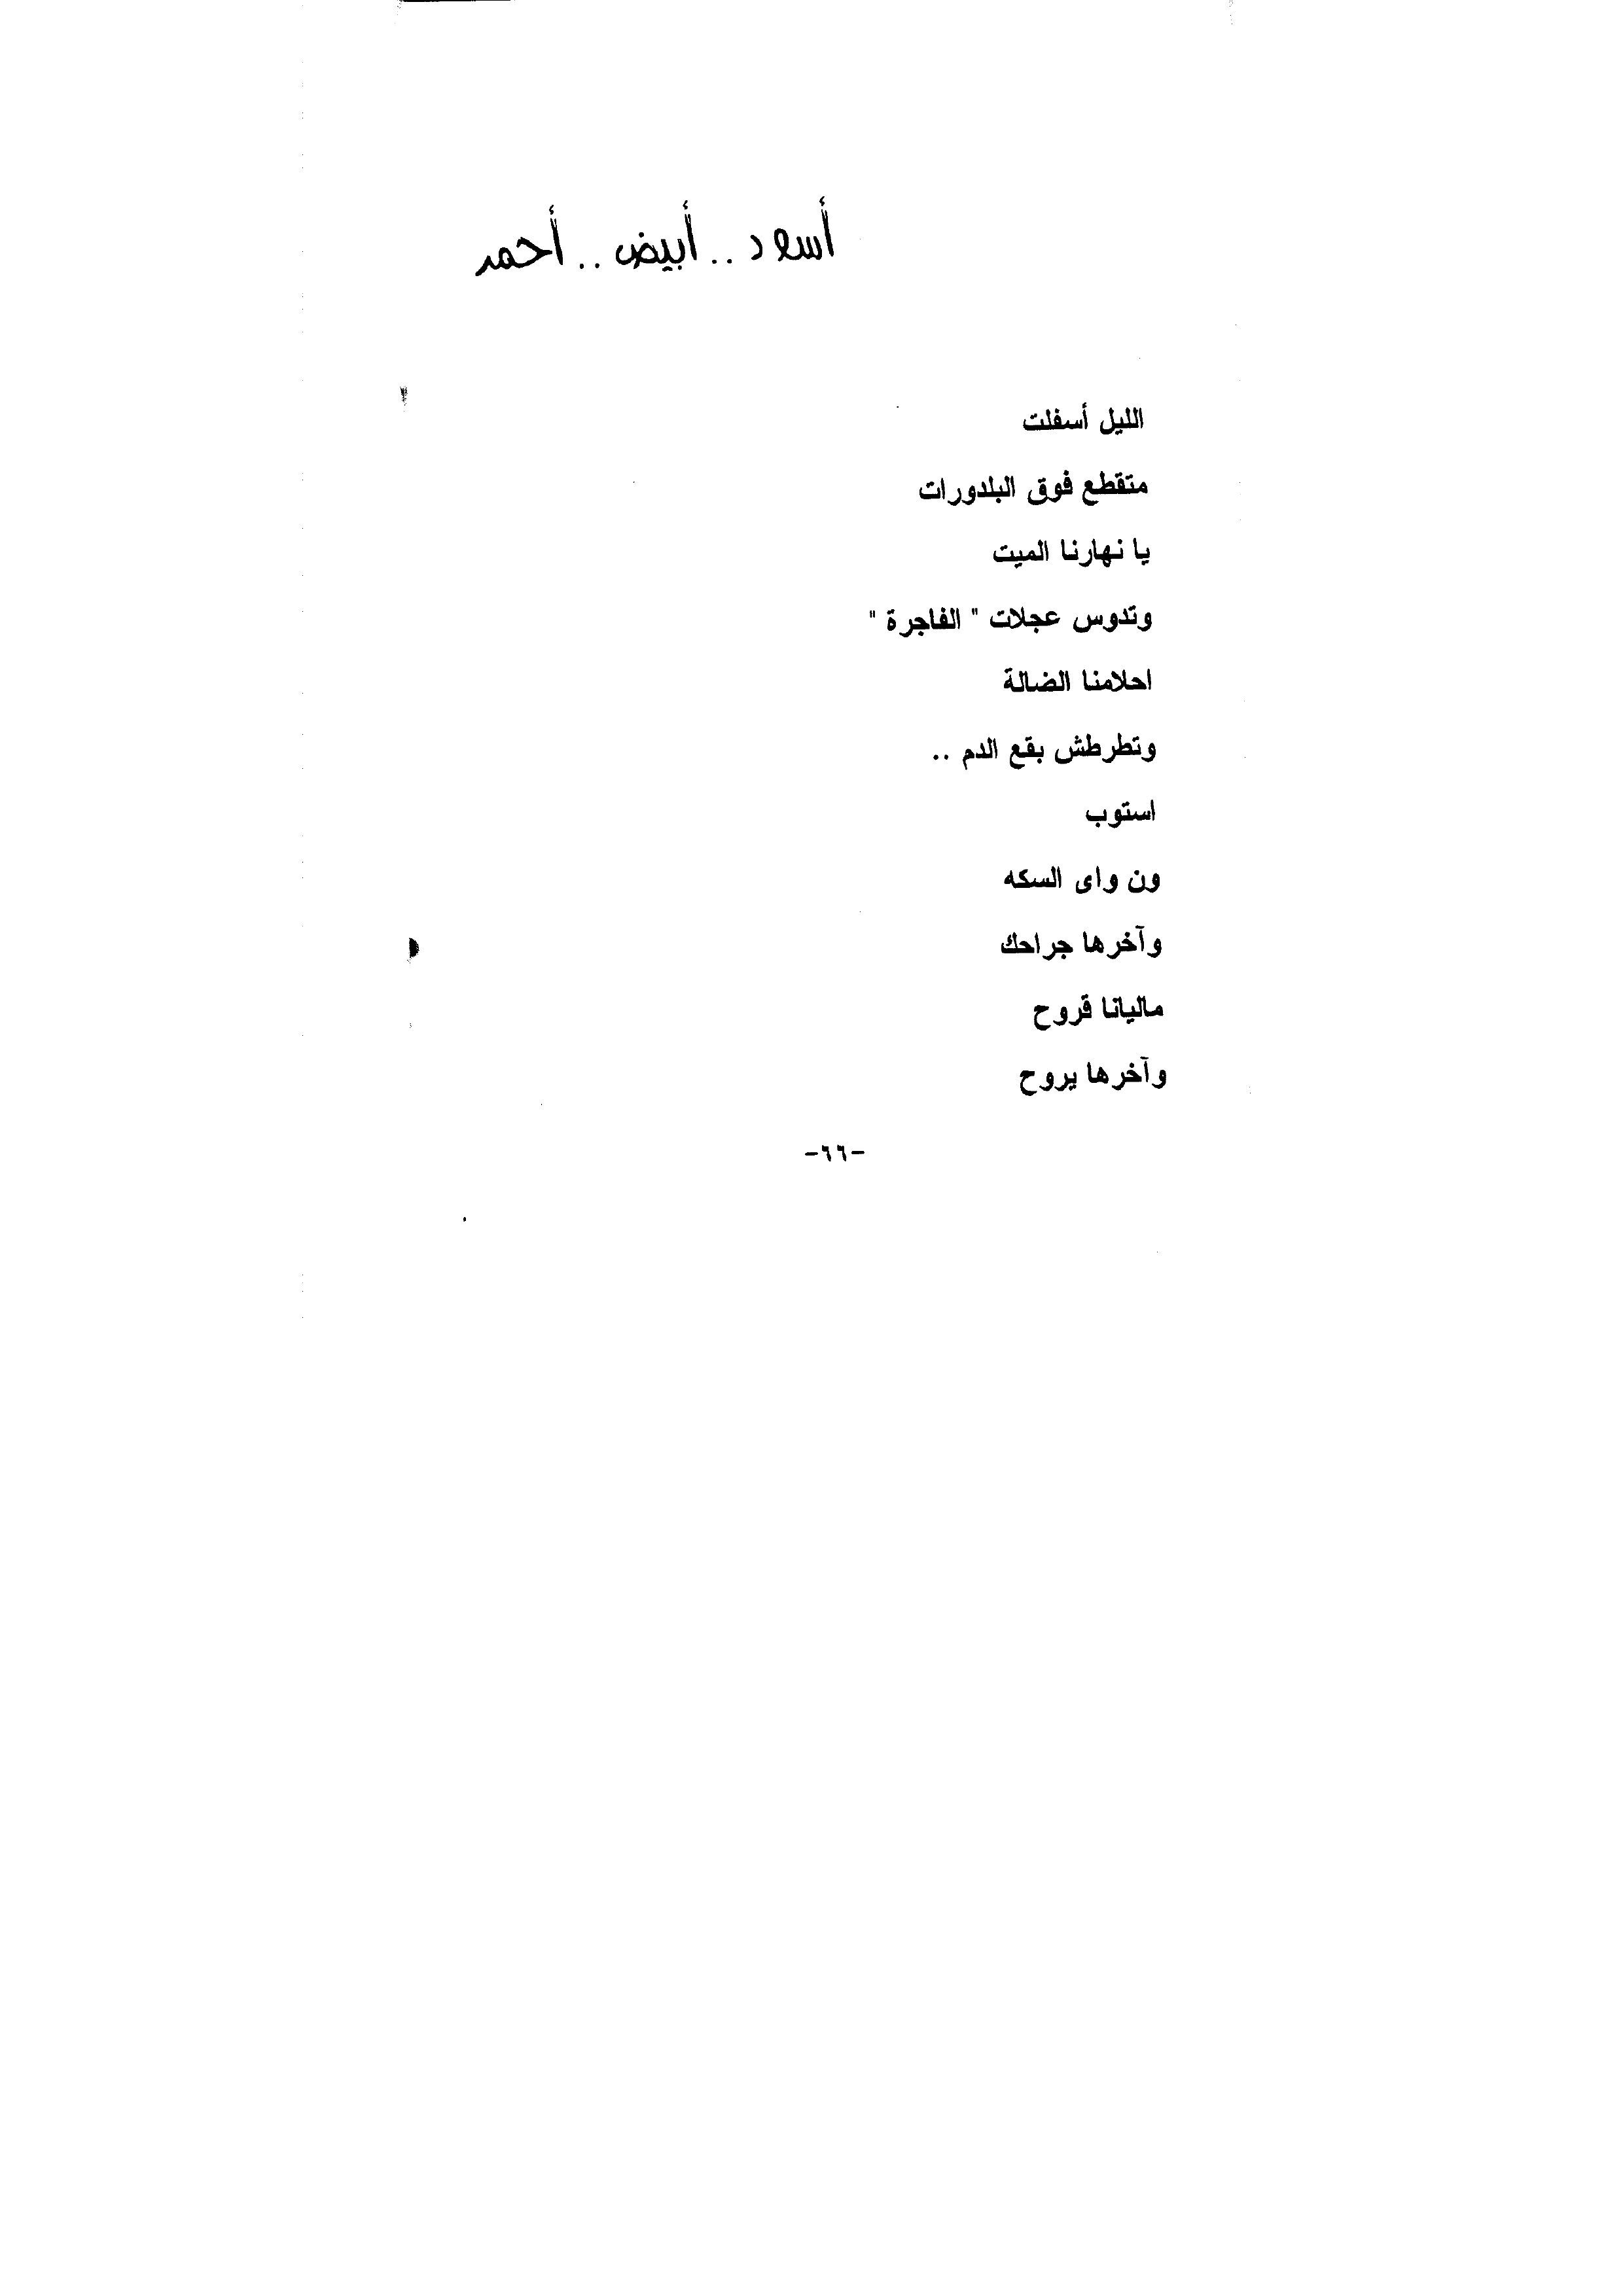 أسود .. أبيض .. أحمر
الليل أسفلت
متقطع فوق البلدورات
يا نهارنا الميت
وتدوس عجلات " الفاجرة "
احلامنا الضالة
وتطرطش بقع الدم ..
استوب
ون واى السكه
وآخرها جراحك
ماليانا قروح
وآخرها يروح
-٦٦-